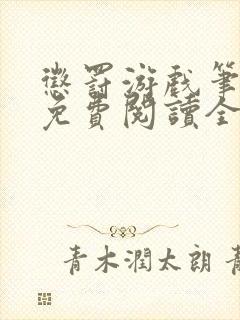 懲罰游戲筆
免費閱讀全
青木潤太朗 青